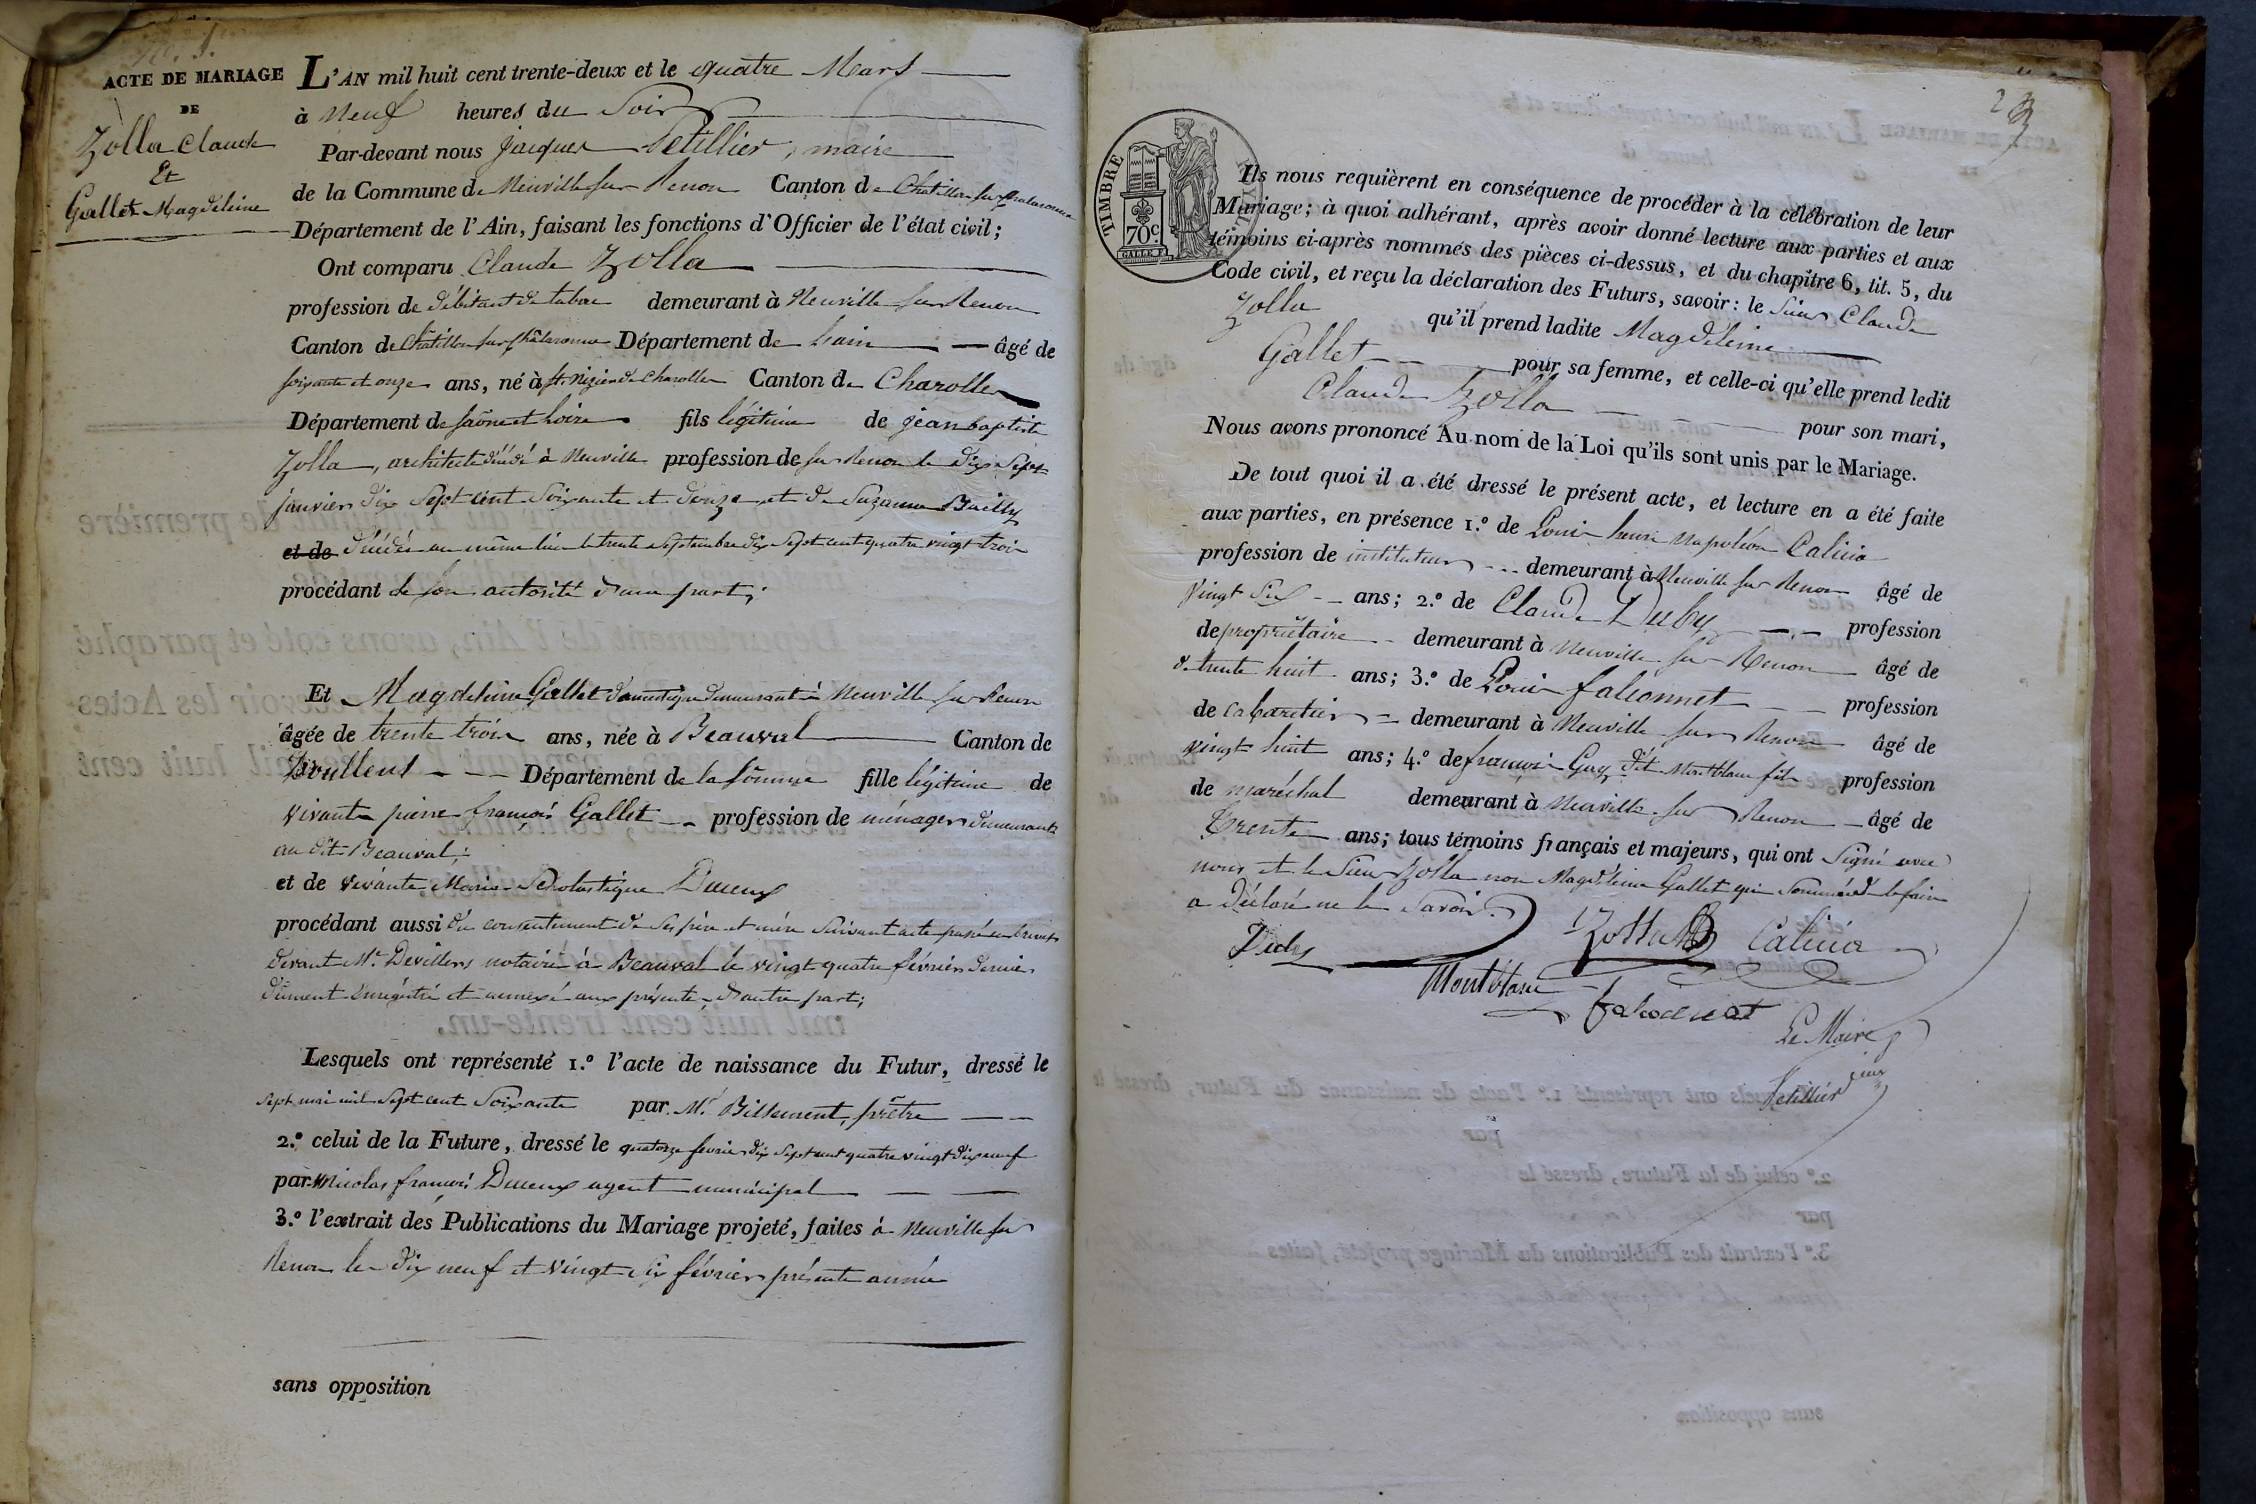 No. 1.
ACTE DE MARIAGE
DE
Zolla Claude
Et
Gallet Magdeleine
L'AN mil huit cent trente-deux et le quatre Mars
à Neuf heures du Soir
Par-devant nous Jacques Petillier, maire
de la Commune de Neuville sur Renon Canton de Châtillon sur Chalaronne
Département de l'Ain, faisant les fonctions d'Officier de l'état civil;
Ont comparu Claude Zolla
profession de débitant de tabac demeurant à Neuville sur Renon
Canton de Châtillon sur Chalaronne Département de Lain âgé de
soixante et onze ans, né à St. Nizier de Charolles Canton de Charolles
Département de saône et Loire fils légitime de jean baptiste
Zolla, architecte décédé à Neuville profession de sur Renon le Dix Sept
janvier dix Sept cent Soixante et douze et de Suzanne Bailly
et de décédée au même lieu le trente Septembre dix Sept cent quatre vingt trois
procédant de son autorité d'une part;
Et Magdeleine Gallet domestique demeurant à Neuville sur Renon
âgée de trente trois ans, née à Beauval Canton de
Doullens Département de la sômme fille légitime de
vivant pierre françois Gallet profession de ménager demeurant
au dit Beauval;
et de vivante Marie Scholastique Duceux
procédant aussi du consentement de ses père et mère suivant acte passé en brevet
devant Me. Devillers notaire à Beauval le vingt quatre février dernier
dûment enregistré et annexé aux présentes, d'autre part;
Lesquels ont représenté 1.º l'acte de naissance du Futur, dressé le
sept mai mil sept cent soixante par Mr. Billement, prêtre
2.º celui de la Future, dressé le quatorze fevrier dix sept cent quatre vingt dix neuf
par Nicolas françois Duceux agent municipal
3.º l'extrait des Publications du Mariage projeté, faites à Neuville sur
Renon le dix neuf et vingt six février présente année
sans opposition
2
TIMBRE
70 c.
GALLE F.
Ils nous requièrent en conséquence de procéder à la célébration de leur
Mariage; à quoi adhérant, après avoir donné lecture aux parties et aux
témoins ci-après nommés des pièces ci-dessus, et du chapitre 6, tit. 5, du
Code civil, et reçu la déclaration des Futurs, savoir: le Sieur Claude
Zolla qu'il prend ladite Magdeleine
Gallet pour sa femme, et celle-ci qu'elle prend ledit
Claude Zolla pour son mari,
Nous avons prononcé Au nom de la Loi qu'ils sont unis par le Mariage.
De tout quoi il a été dressé le présent acte, et lecture en a été faite
aux parties, en présence 1.º de Louis henri Napoléon Calicia
profession de instituteur demeurant à Neuville sur Renon âgé de
vingt six ans; 2.º de Claude Duby profession
de propriétaire demeurant à Neuville sur Renon âgé de
de trente huit ans; 3.º de Louis falconnet profession
de cabaretier demeurant à Neuville sur Renon âgé de
vingt huit ans; 4.º de françois Guy dit Montblanc fils profession
de maréchal demeurant à Neuville sur Renon âgé de
Trente ans; tous témoins français et majeurs, qui ont signé avec
nous et le Sieur Zolla non Magdeleine Gallet qui sommée de le faire
a déclaré ne le savoir.
Duby Zolla Calicia
Montblanc falconnet
Le Maire
Petillier